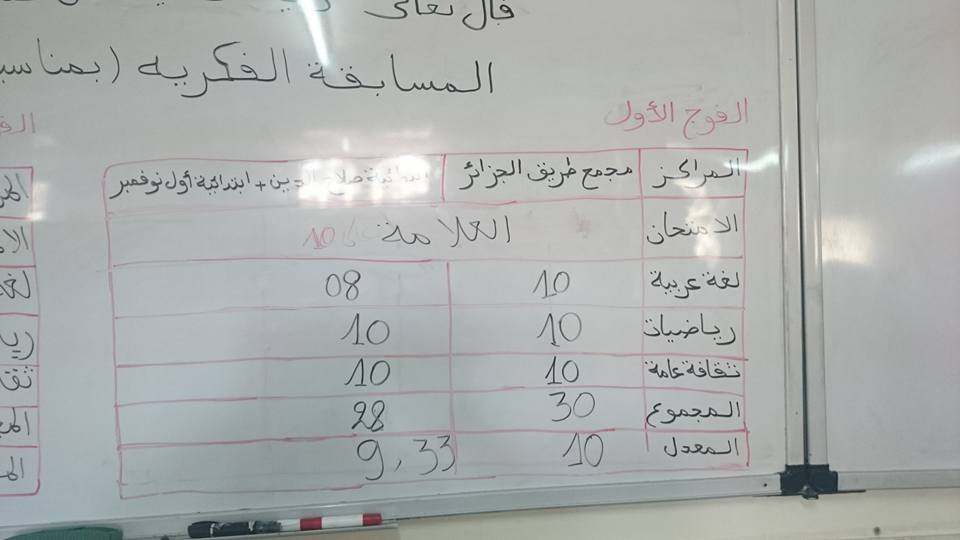 قال تعالى
المسابقة الفكرية (بمناسب
الفوج الأول
المراكز مجمع طريق الجزائر ابتدائية صلاح الدين + ابتدائية أول نوفمبر
الامتحان العلامة على 10
لغة عربية 10 08
رياضيات 10 10
ثقافة عامة 10 10
المجموع 30 28
المعدل 10 9,33
الف
الا
لغة
ريا
ثقا